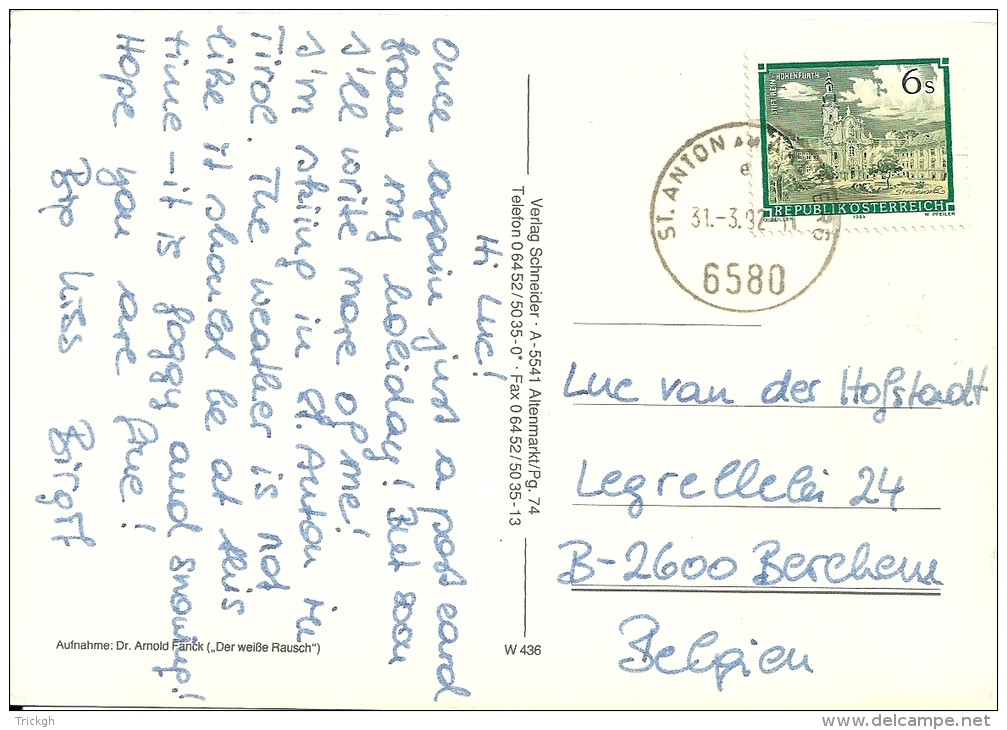 Hi Luc!
Once again just a post card
from my holiday! But soon
I'll write more of me!
I'm skiing in St. Anton in
Tirol. The weather is not
like it should be at this
time - it is foggy and snowing!
Hope you are fine!
Big kiss Birgit
Aufnahme: Dr. Arnold Fanck („Der weiße Rausch“)
Verlag Schneider · A-5541 Altenmarkt/Pg. 74
Telefon 0 64 52 / 50 35-0* · Fax 0 64 52 / 50 35-13
W 436
STIFT REIN-HOHENFURTH
6 S
REPUBLIK ÖSTERREICH
1984
W. PFEILER
ST. ANTON AM
31.-3.92-11
6580
Luc van der Hofstadt
Legrellelei 24
B-2600 Berchem
Belgien
Trickgh
www.delcampe.net